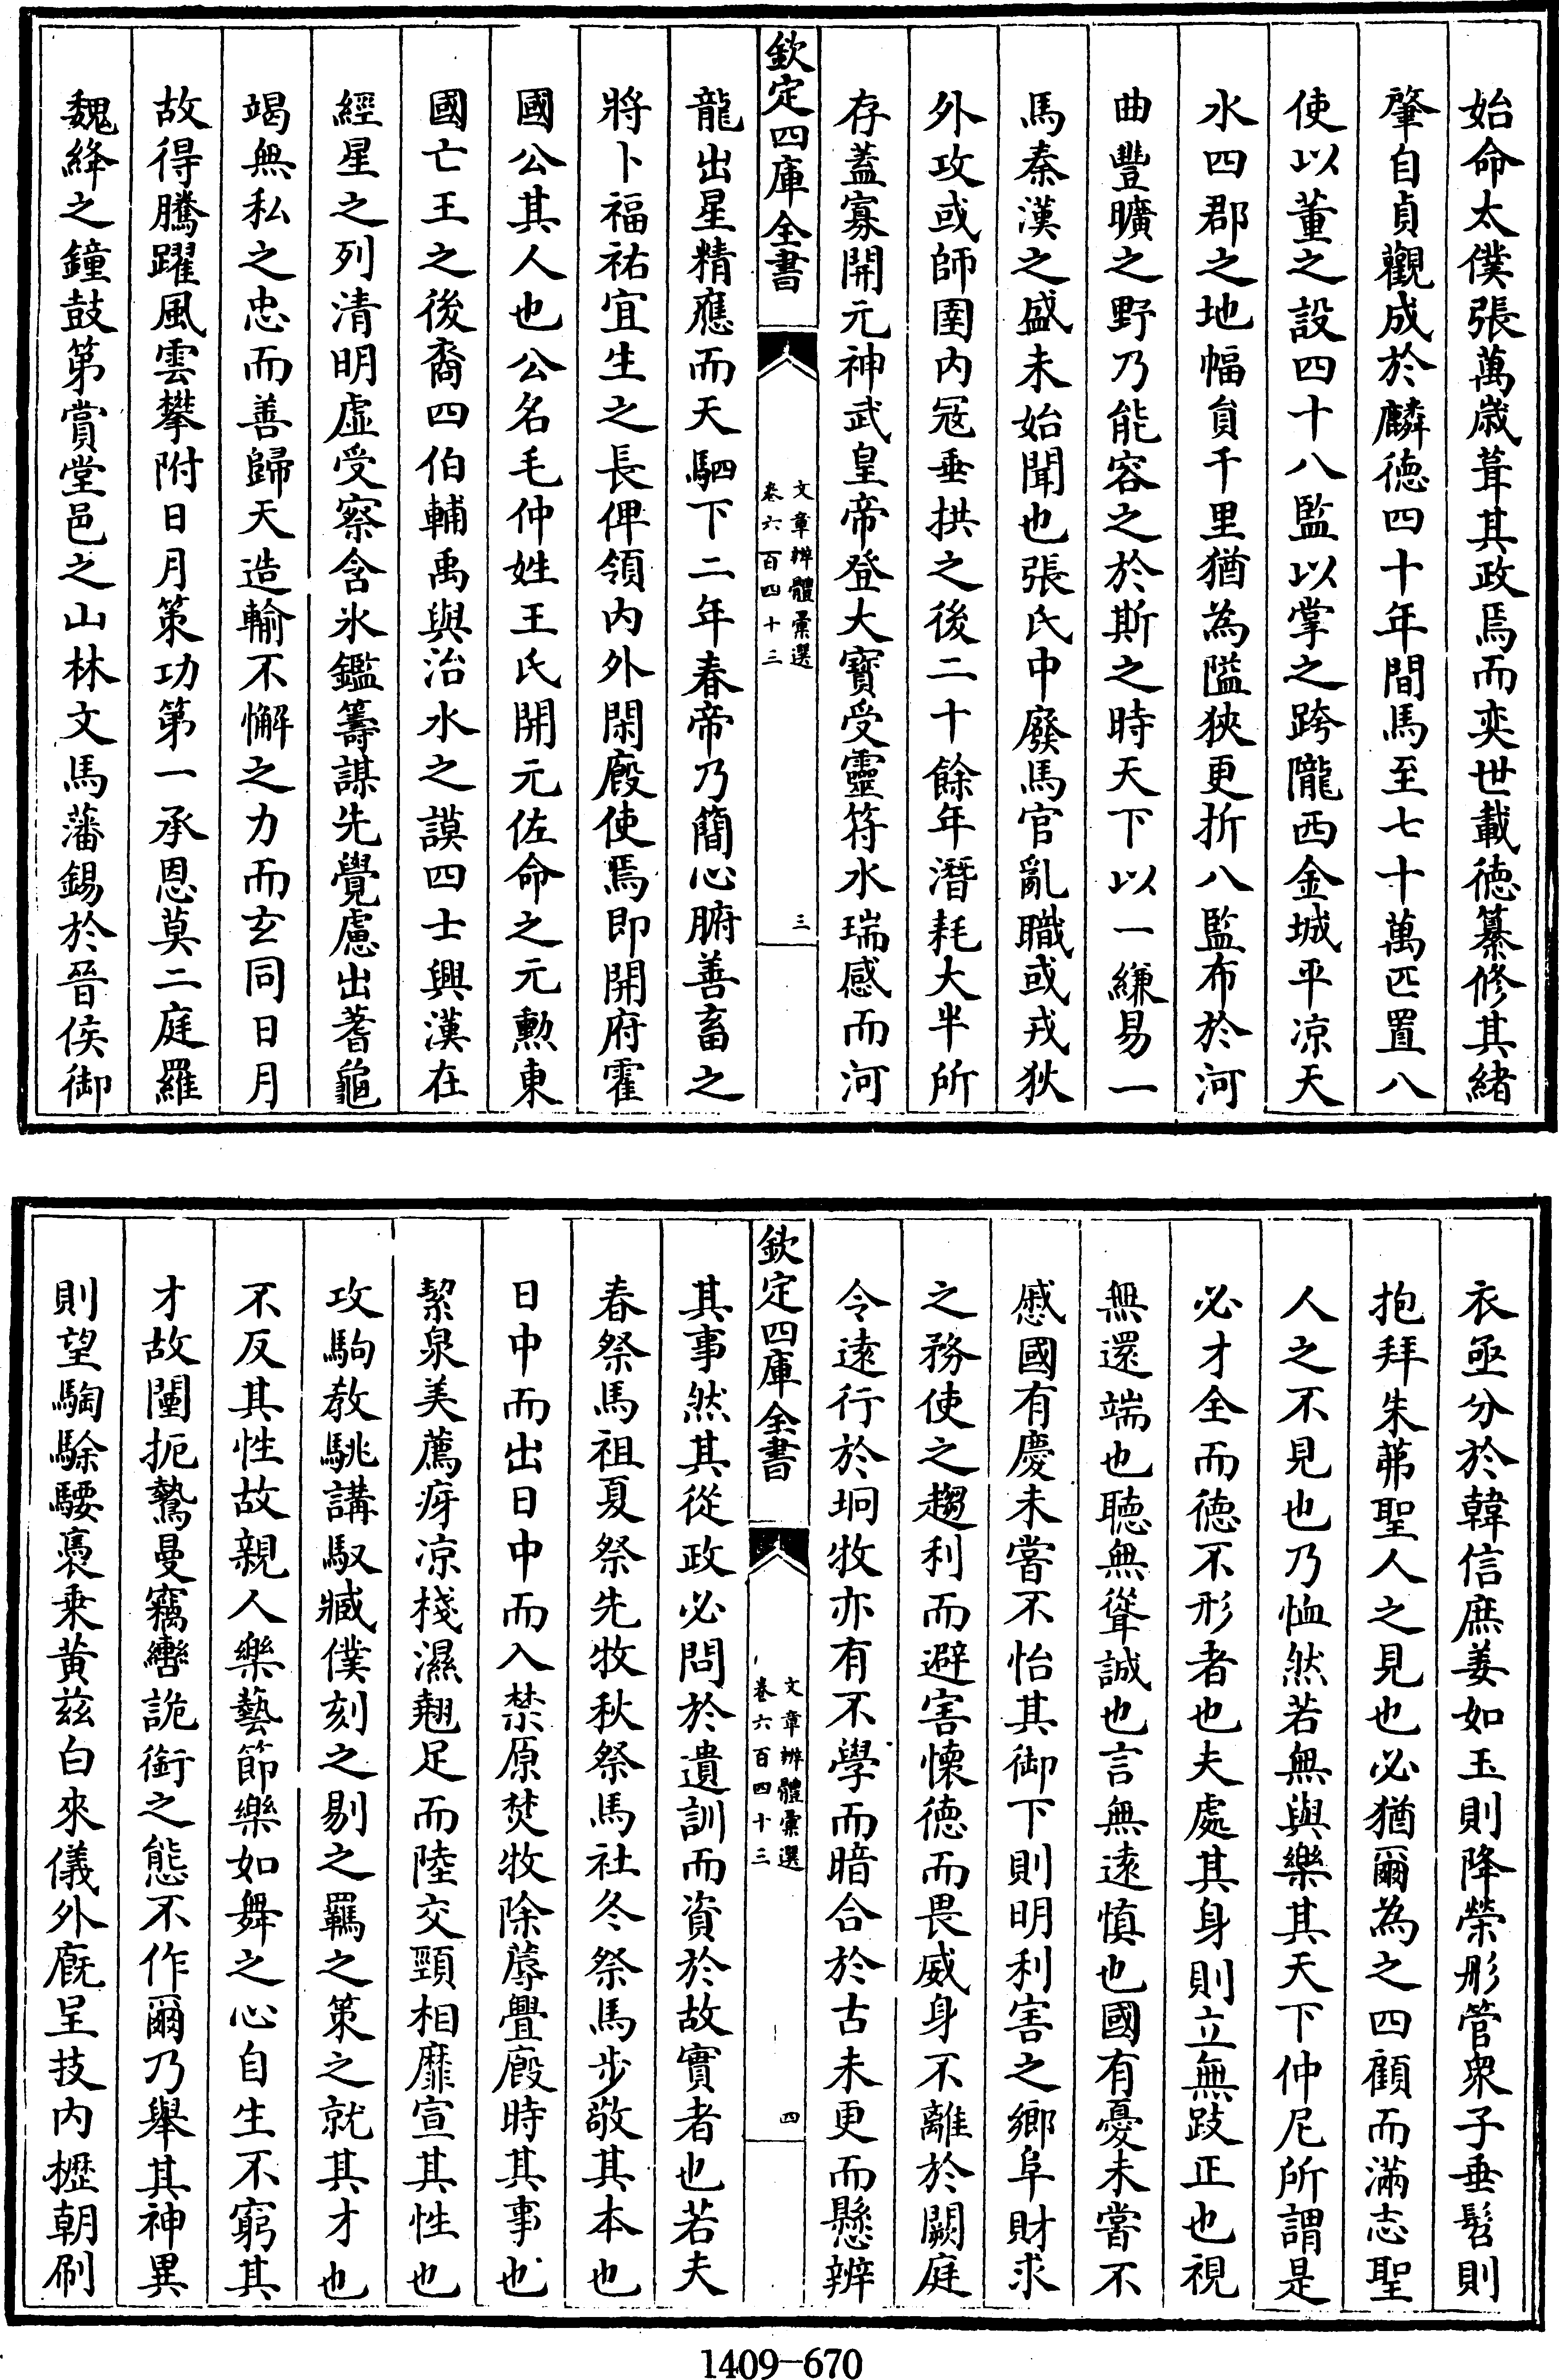 始命太僕張萬歲葺其政焉而奕世載徳纂修其緒
肇自貞觀成於麟徳四十年間馬至七十萬匹置八
使以董之設四十八監以掌之跨隴西金城平凉天
水四郡之地幅員千里猶為隘狹更折八監布於河
曲豐曠之野乃能容之於斯之時天下以一縑易一
馬秦漢之盛未始聞也張氏中廢馬官亂職或戎狄
外攻或師圉内冦垂拱之後二十餘年潛耗大半所
存蓋寡開元神武皇帝登大寳受靈符水瑞感而河
欽定四庫全書
文章辨體彙選
卷六百四十三
三
龍出星精應而天駟下二年春帝乃簡心腑善畜之
將卜福祐宜生之長俾領内外閑廄使焉即開府霍
國公其人也公名毛仲姓王氏開元佐命之元勲東
國亡王之後裔四伯輔禹與治水之謨四士興漢在
經星之列清明虚受察含氷鑑籌謀先覺慮出蓍龜
竭無私之忠而善歸天造輸不懈之力而玄同日月
故得騰躍風雲攀附日月策功第一承恩莫二庭羅
魏絳之鐘鼓第賞堂邑之山林文馬藩錫於晉侯御
衣亟分於韓信庶姜如玉則降榮彤管衆子垂髫則
抱拜朱茀聖人之見也必猶爾為之四顧而滿志聖
人之不見也乃恤然若無與樂其天下仲尼所謂是
必才全而徳不形者也夫處其身則立無跂正也視
無還端也聽無聳誠也言無遠慎也國有憂未嘗不
慼國有慶未嘗不怡其御下則明利害之鄉阜財求
之務使之趨利而避害懐徳而畏威身不離於闕庭
令逺行於坰牧亦有不學而暗合於古未更而懸辨
欽定四庫全書
文章辨體彙選
卷六百四十三
四
其事然其從政必問於遺訓而資於故實者也若夫
春祭馬祖夏祭先牧秋祭馬社冬祭馬步敬其本也
日中而出日中而入禁原焚牧除蓐釁廄時其事也
絜泉美薦庌凉棧濕翹足而陸交頸相靡宣其性也
攻駒教駣講馭臧僕刻之剔之羈之策之就其才也
不反其性故親人樂藝節樂如舞之心自生不窮其
才故闉扼鷙曼竊轡詭銜之態不作爾乃舉其神異
則望騊駼騕褭乗黄兹白來儀外廐呈技内櫪朝刷
1409-670